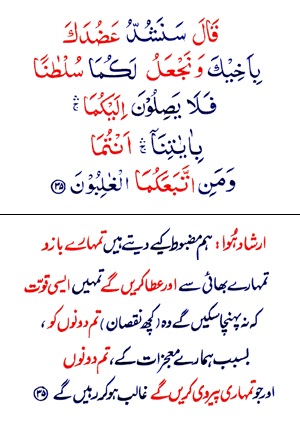 قَالَ سَنَشُدُّ عَضُدَكَ
بِاَخِيْكَ وَنَجْعَلُ لَكُمَا سُلْطٰنًا
فَلَا يَصِلُوْنَ اِلَيْكُمَا ۛۚ
بِاٰيٰتِنَاۤ ۛۚ اَنْتُمَا
وَمَنِ اتَّبَعَكُمَا الْغٰلِبُوْنَ ﴿۳۵﴾
ارشاد ہُوا: ہم مضبوط کیے دیتے ہیں تمہارے بازو
تمہارے بھائی سے اور عطا کریں گے تمہیں ایسی قوّت
کہ نہ پہنچا سکیں گے وہ (کچھ نقصان) تم دونوں کو ،
بسبب ہمارے معجزات کے، تم دونوں
اور جو تمہاری پیروی کریں گے غالب ہو کر رہیں گے ﴿۳۵﴾